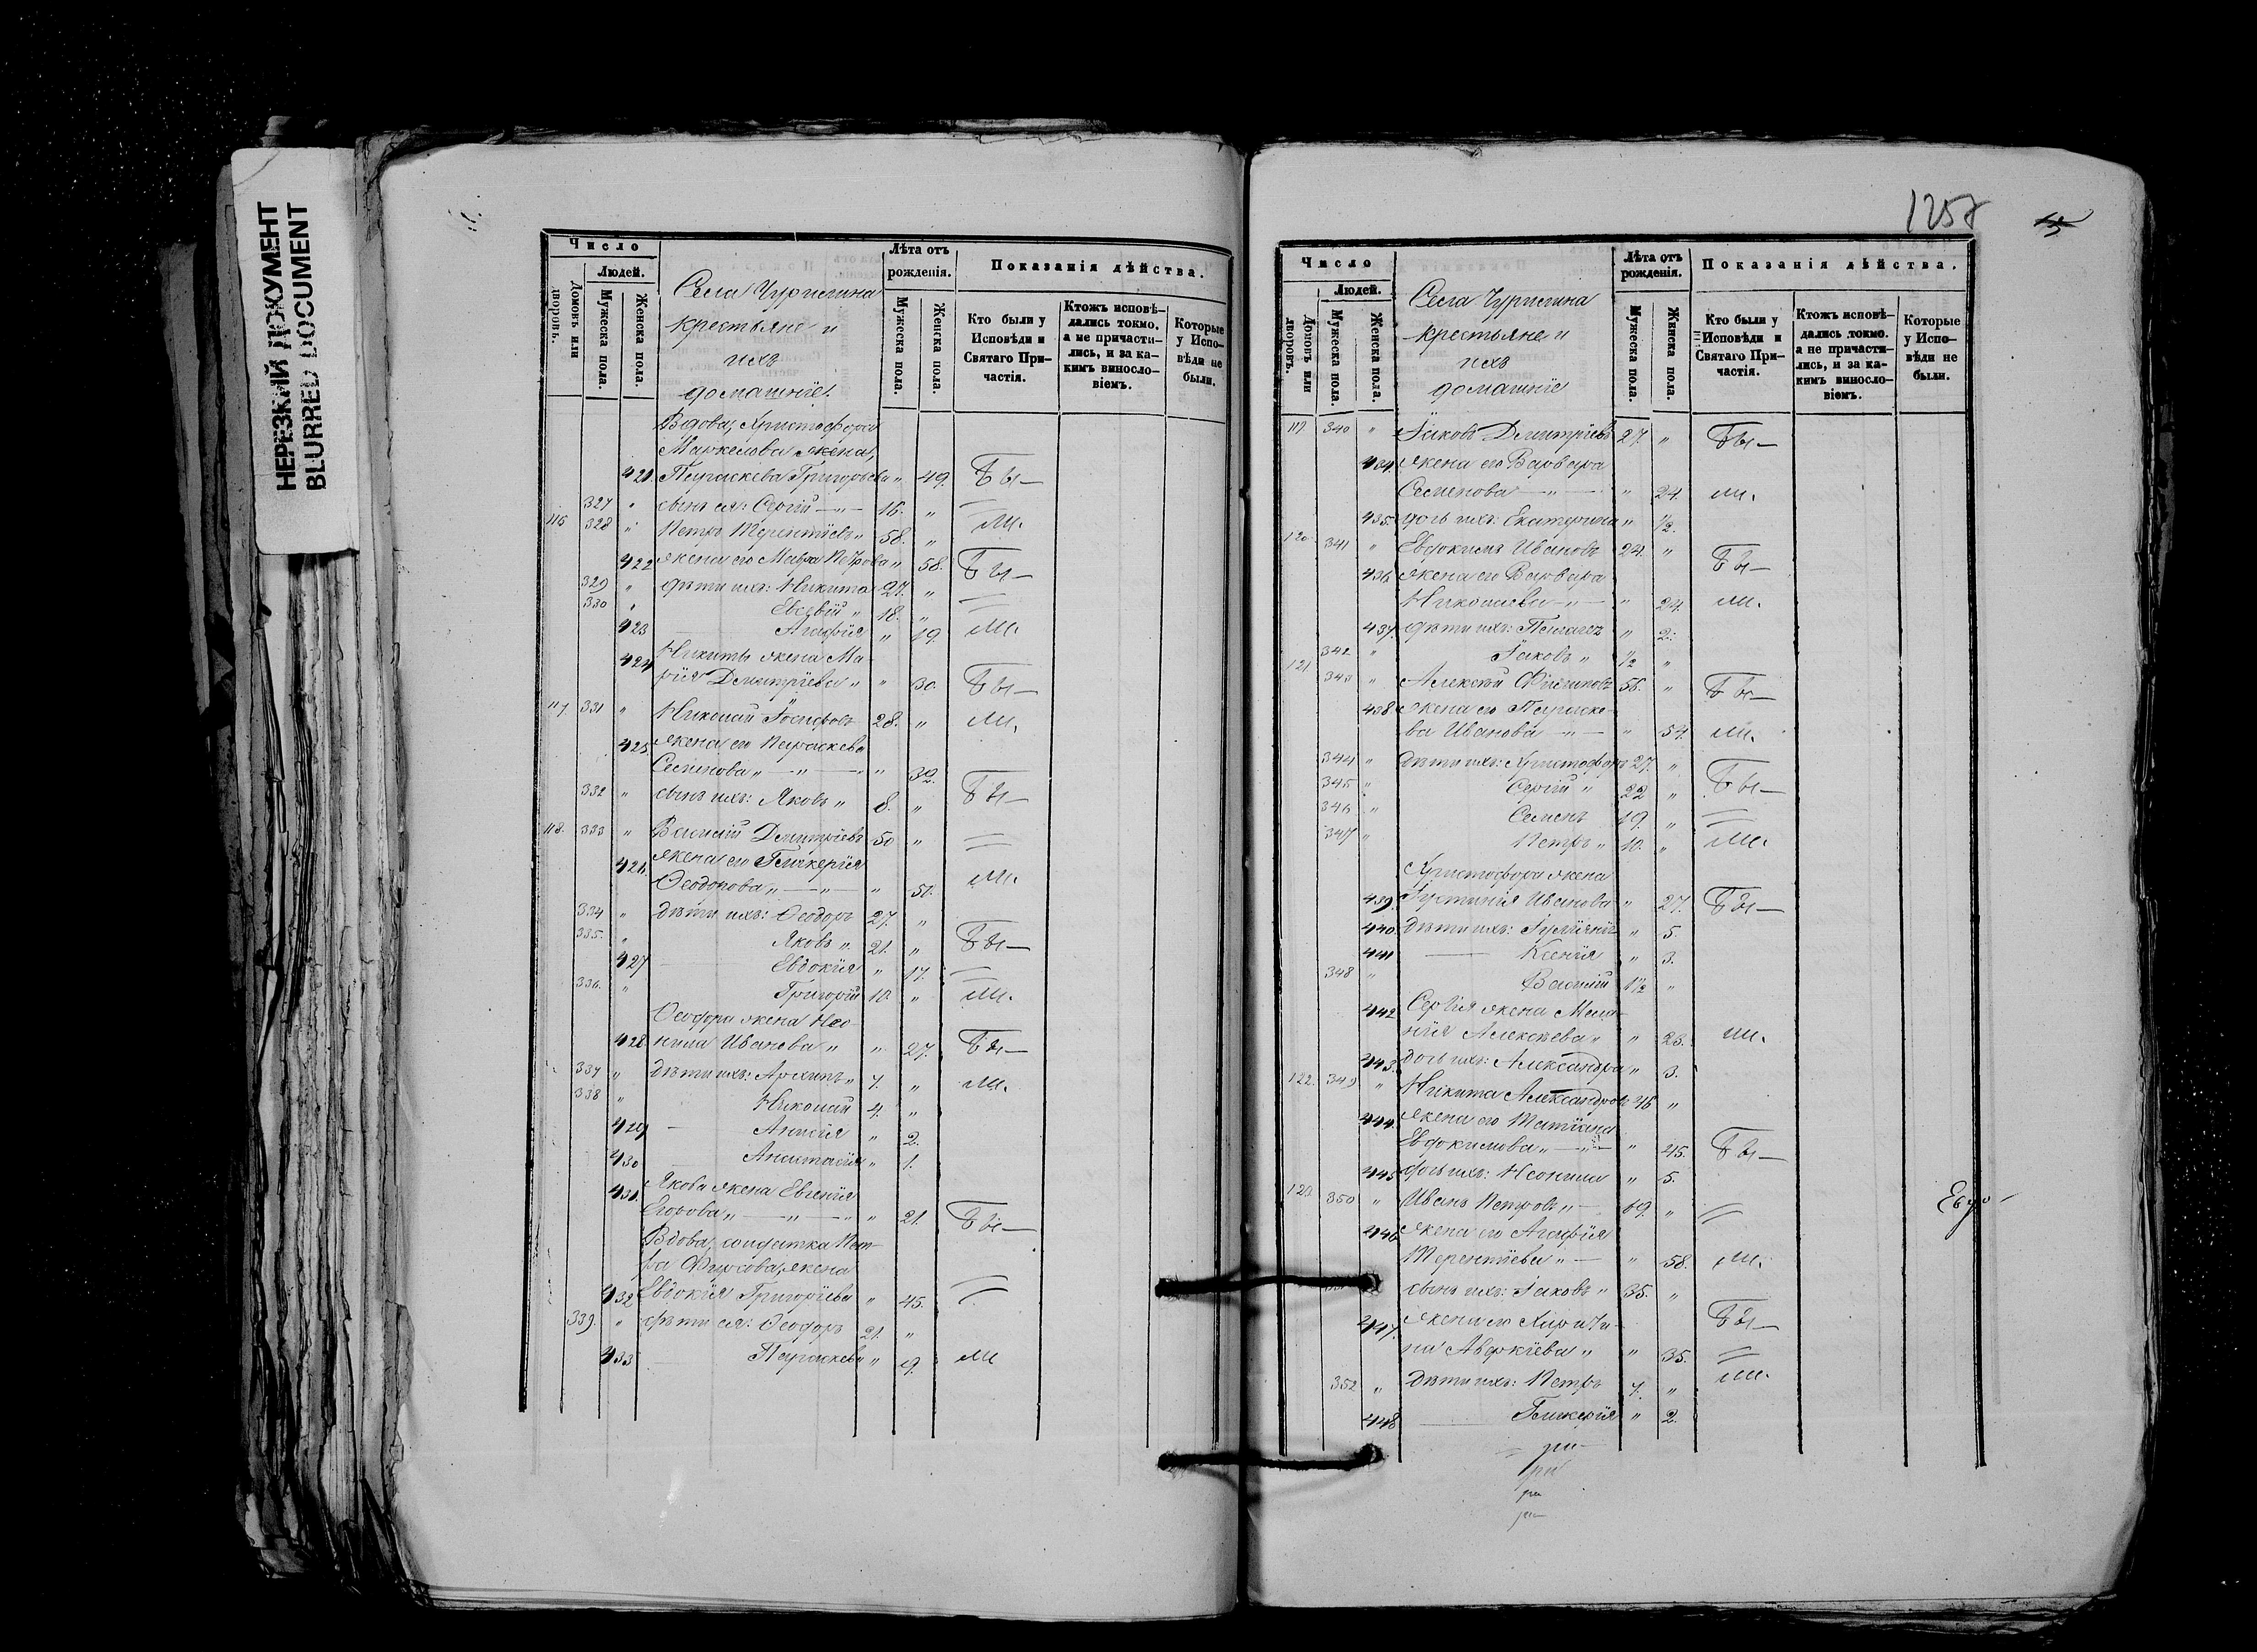 НЕРЕЗКИЙ ДОКУМЕНТ
BLURRED DOCUMENT
Число
Людей.
Домовъ или дворовъ.
Мужеска пола.
Женска пола.
Села Чурилина
крестьяне и
ихъ
домашніе.
Лѣта отъ рожденія.
Мужеска пола.
Женска пола.
Показанія дѣйства.
Кто были у Исповѣди и Святаго Причастія.
Ктожъ исповѣдались токмо, а не причастились, и за какимъ винословіемъ.
Которые у Исповѣди не были.
Вдова, Христофора
Маркелова жена,
421. Параскева Григорьева „ 49. Бы—
327 „ сынъ ея: Сергій —„— 16. „
116 328 „ Петръ Терентіевъ „ 58. „ ли.
422 жена его Мавра Петрова „ 58. Бы—
329 „ дѣти ихъ: Никита 27. „
330 „ Евсевій „ 18. „
423 Агафія „ 19. ли.
Никиты жена Ма-
424 рія Димитріева „ „ 30. Бы—
117. 331 „ Николай Іосифовъ 28. „ ли.
425 жена его Параскева
Семенова „—„—„ „ 32.
332 „ сынъ ихъ: Яковъ „ 8. „ Бы—
118. 333 „ Василій Димитріевъ 50 „
426. жена его Гликерія
Ѳеодорова „—„— „ 51. ли.
334 „ дѣти ихъ: Ѳеодоръ 27. „
335. „ Яковъ „ 21. „ Бы—
427 Евдокія „ 17. „
336. „ Григорій 10. „ ли.
Ѳеодора жена Нео-
428. нила Иванова „ „ 27. Бы—
337 „ дѣти ихъ: Архипъ „ 7. „ ли.
338 „ Николай 4. „
429 Анисія „ 2.
430 Анастасія „ 1.
431. Якова жена Евгенія
Егорова „—„—„ „ 21. Бы—
Вдова, солдатка Пет-
ра Фирсова, жена
432 Евдокія Григоріева „ 45.
339. „ дѣти ея: Ѳеодоръ 21. „
433 Параскева „ 9. ли
1257
Число
Людей.
Домовъ или дворовъ.
Мужеска пола.
Женска пола.
Села Чурилина
крестьяне и
ихъ
домашніе
Лѣта отъ рожденія.
Мужеска пола.
Женска пола.
Показанія дѣйства.
Кто были у Исповѣди и Святаго Причастія.
Ктожъ исповѣдались токмо, а не причастились, и за какимъ винословіемъ.
Которые у Исповѣди не были.
340 „ Іаковъ Димитріевъ 27. „ Бы—
434. жена его Варвара
Семенова —„— „ 24. ли.
435. дочь ихъ: Екатерина „ ½.
120. 341 „ Евдокимъ Ивановъ 24. „ Бы—
436 жена его Варвара
Николаева —„— „ 24. ли.
437. дѣти ихъ: Пелагея „ 2.
342 „ Іаковъ „ ½ „
121 343 „ Алексѣй Филиповъ 56. „ Бы—
438 жена его Параске-
ва Иванова —„— „ 54. ли.
344 „ дѣти ихъ: Христофоръ 27. „
345 „ Сергій „ 22 „ Бы—
346 „ Семенъ 19. „
347 „ Петръ „ 10. „ ли.
Христофора жена
439. Іустинія Иванова „ 27. Бы—
440. дѣти ихъ: Іуліанія „ 5.
441 Ксенія „ 3.
348 „ Василій 1½ „
442 Сергія жена Мела-
нія Алексѣева „ „ 23. ли.
443. дочь ихъ: Александра „ 3.
122. 349 „ Никита Александровъ 46 „
444. жена его Татіана
Евдокимова „—„— „ 45. Бы—
445 дочь ихъ: Неонила „ 5.
123. 350 „ Иванъ Петровъ „— 69. „
446 жена его Агафія
Терентіева „— „ 58. ли.
сынъ ихъ: Іаковъ „ 35. „
447. жена его Харити-
на Аверкіева „ „ 35. Бы—
352 „ дѣти ихъ: Петръ 7. „ ли.
448 Гликерія „ 2.